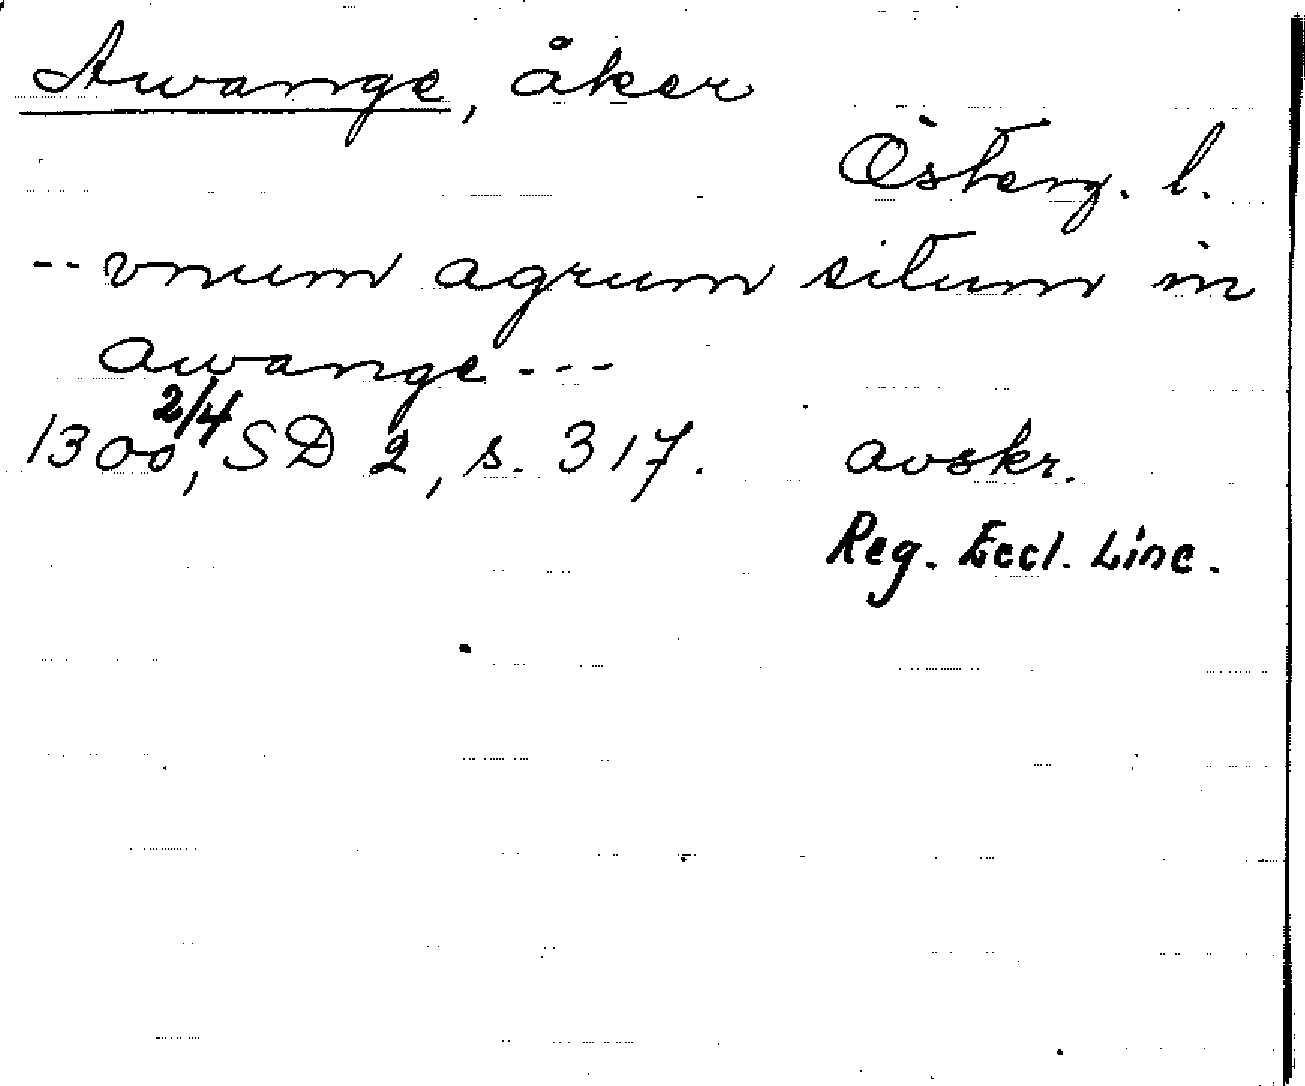 Awange, åker
Österg. l.
-- vnum agrum situm in
awange ---
1300 2/4, SD 2, s. 317. avskr.
Reg. Eccl. Linc.